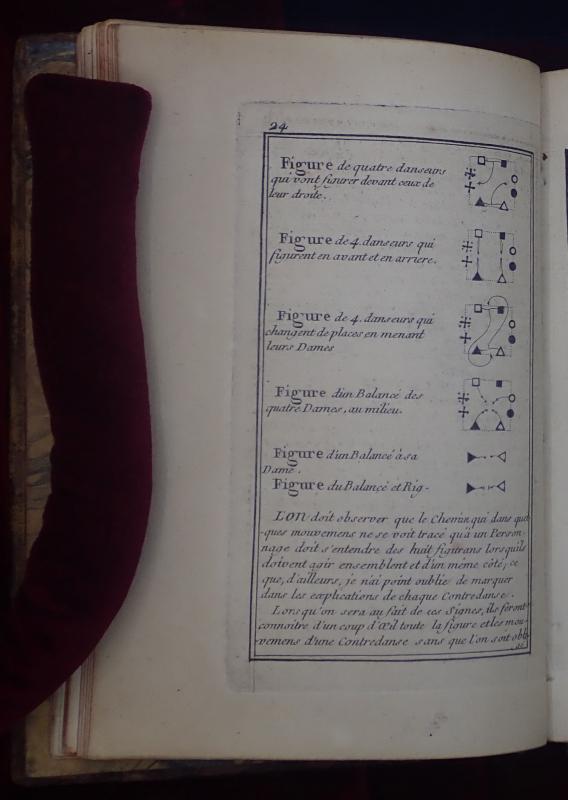 24
Figure de quatre danseurs
qui vont figurer devant ceux de
leur droite.
Figure de 4. danseurs qui
figurent en avant et en arriere.
Figure de 4. danseurs qui
changent de places en menant
leurs Dames
Figure d'un Balancé des
quatre Dames, au milieu.
Figure d'un Balancé à sa
Dame.
Figure du Balancé et Rig-
L'ON doit observer que le Chemin qui dans quel-
-ques mouvemens ne se voit tracé qu'à un Person-
nage doit s'entendre des huit figurans lorsqu'ils
doivent agir ensemblent et d'un même côté; ce
que, d'ailleurs, je n'ai point oublié de marquer
dans les explications de chaque Contredanse.
Lorsqu'on sera au fait de ces Signes, ils feront
connoitre d'un coup d'œil toute la figure et les mou-
vemens d'une Contredanse sans que l'on soit obli-